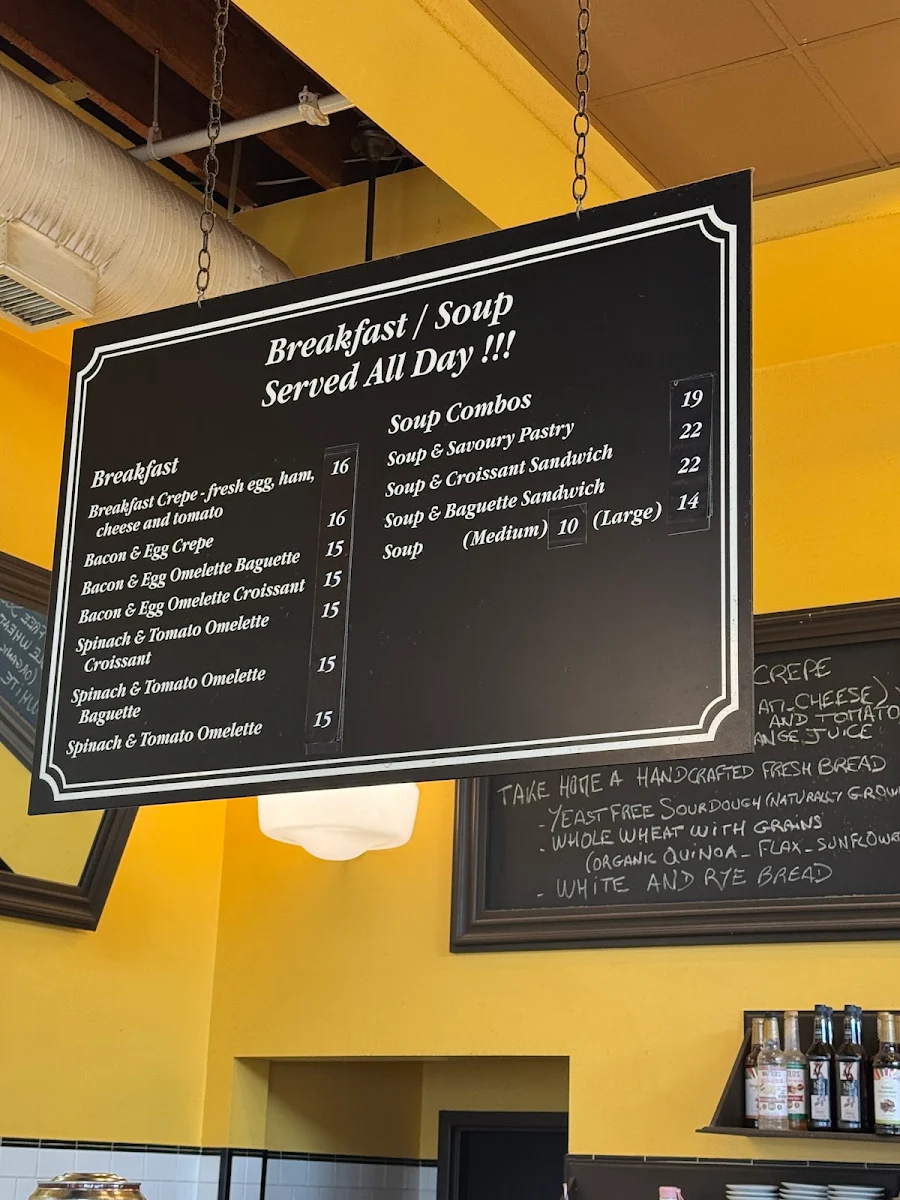 Breakfast / Soup
Served All Day !!!
Breakfast
Breakfast Crepe - fresh egg, ham, 16
cheese and tomato
Bacon & Egg Crepe 16
Bacon & Egg Omelette Baguette 15
Bacon & Egg Omelette Croissant 15
Spinach & Tomato Omelette 15
Croissant
Spinach & Tomato Omelette 15
Baguette
Spinach & Tomato Omelette 15
Soup Combos
Soup & Savoury Pastry 19
Soup & Croissant Sandwich 22
Soup & Baguette Sandwich 22
Soup (Medium) 10 (Large) 14
CREPE
CHEESE)
AND TOMATO
JUICE
TAKE HOME A HANDCRAFTED FRESH BREAD
- YEAST FREE SOURDOUGH (NATURALLY
- WHOLE WHEAT WITH GRAINS
(ORGANIC QUINOA - FLAX - SUNFLOWER
- WHITE AND RYE BREAD